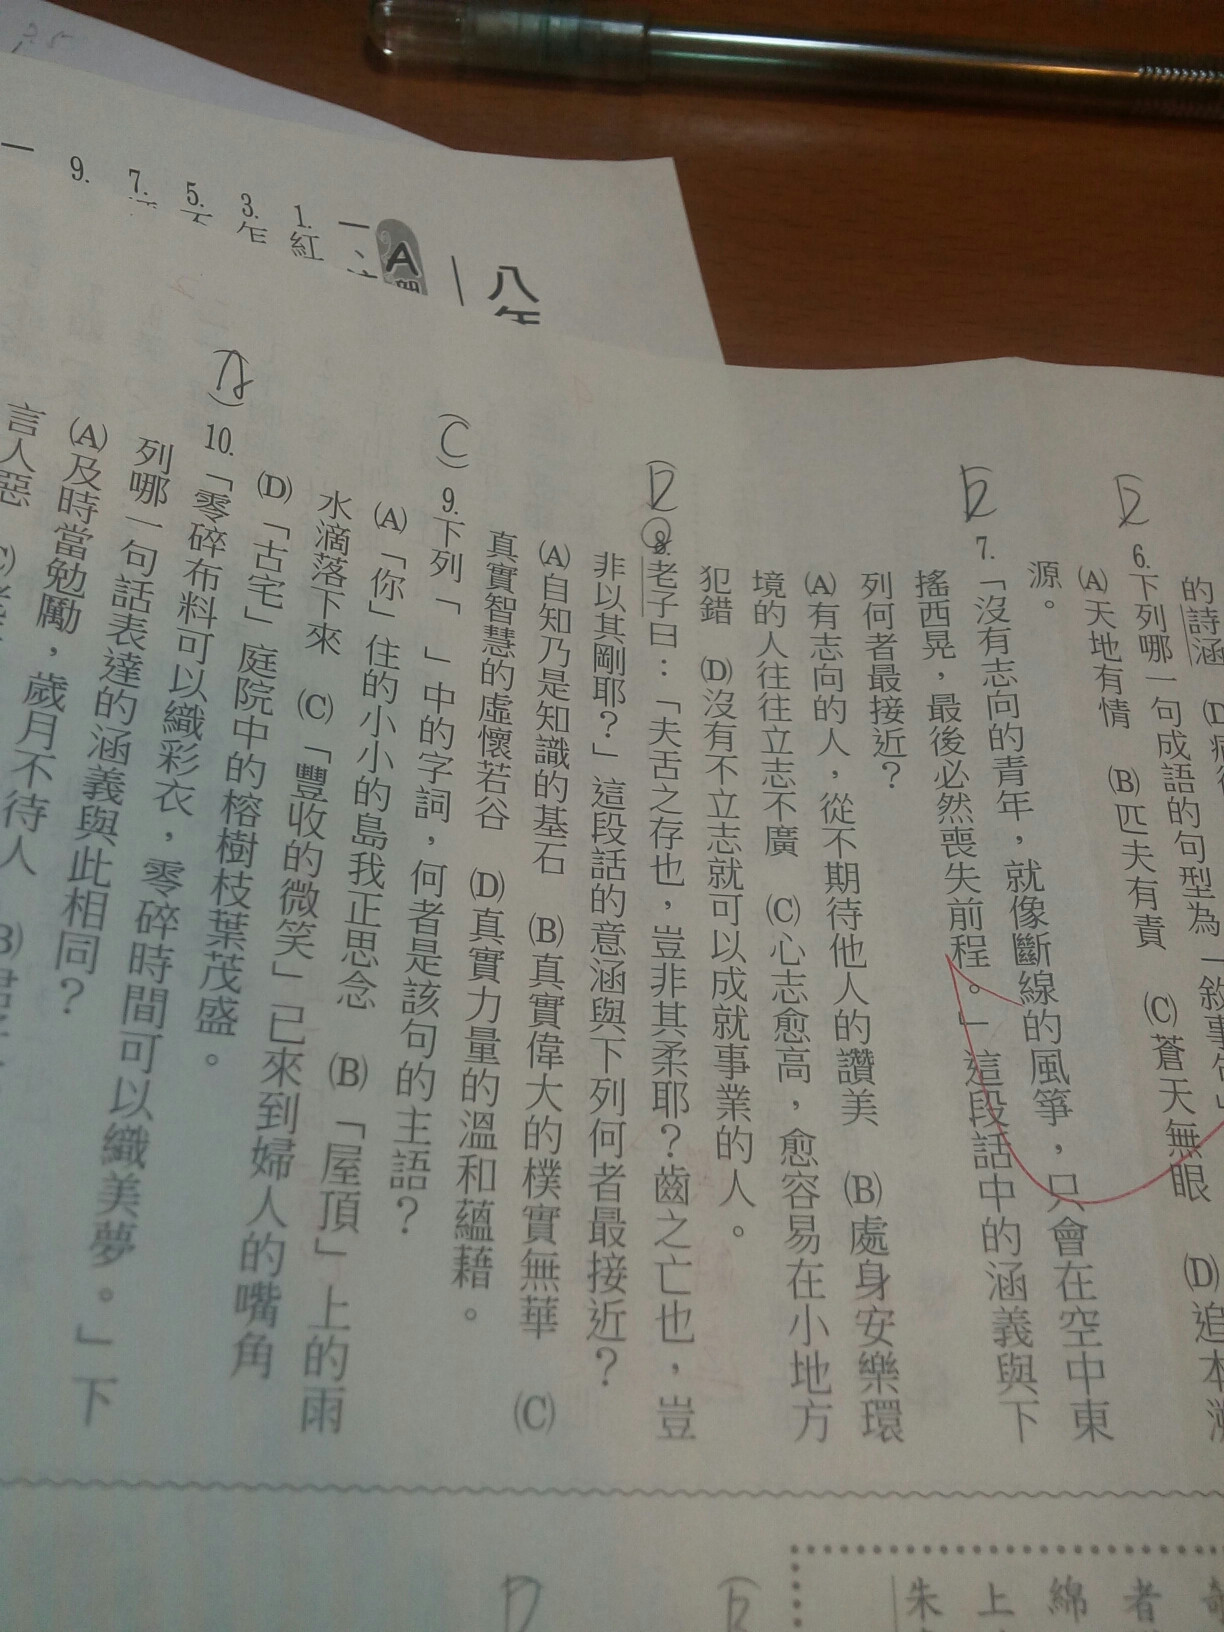 的詩涵
6.下列哪一句成語的句型為「敘事句」
(A)天地有情 (B)匹夫有責 (C)蒼天無眼 (D)追本溯
源。
7.「沒有志向的青年，就像斷線的風箏，只會在空中東
搖西晃，最後必然喪失前程。」這段話中的涵義與下
列何者最接近？
(A)有志向的人，從不期待他人的讚美 (B)處身安樂環
境的人往往立志不廣 (C)心志愈高，愈容易在小地方
犯錯 (D)沒有不立志就可以成就事業的人。
D 8.老子曰：「夫舌之存也，豈非其柔耶？齒之亡也，豈
非以其剛耶？」這段話的意涵與下列何者最接近？
(A)自知乃是知識的基石 (B)真實偉大的樸實無華 (C)
真實智慧的虛懷若谷 (D)真實力量的溫和蘊藉。
(C) 9.下列「 」中的字詞，何者是該句的主語？
(A)「你」住的小小的島我正思念 (B)「屋頂」上的雨
水滴落下來 (C)「豐收的微笑」已來到婦人的嘴角
(D)「古宅」庭院中的榕樹枝葉茂盛。
10.「零碎布料可以織彩衣，零碎時間可以織美夢。」下
列哪一句話表達的涵義與此相同？
(A)及時當勉勵，歲月不待人
言人惡
八年
A
一、
1.紅
3.
5.
7.
9.
朱
上
綿
者